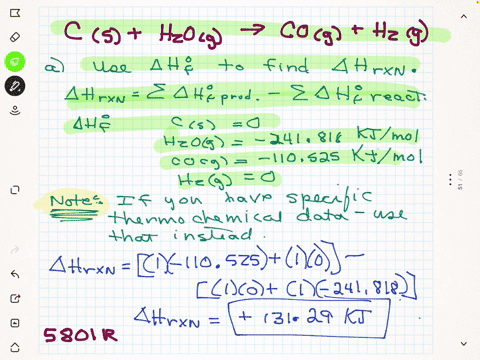 C(s) + H2O(g) → CO(g) + H2(g)
a) Use ΔH°f to find ΔHrxn.
ΔHrxn = Σ ΔH°f prod. - Σ ΔH°f react.
ΔH°f C(s) = 0
H2O(g) = -241.818 KJ/mol
CO(g) = -110.525 KJ/mol
H2(g) = 0
Note: If you have specific
thermochemical data - use
that instead.
ΔHrxn = [(1)(-110.525) + (1)(0)] -
[(1)(0) + (1)(-241.818)]
ΔHrxn = + 131.29 KJ
5801R